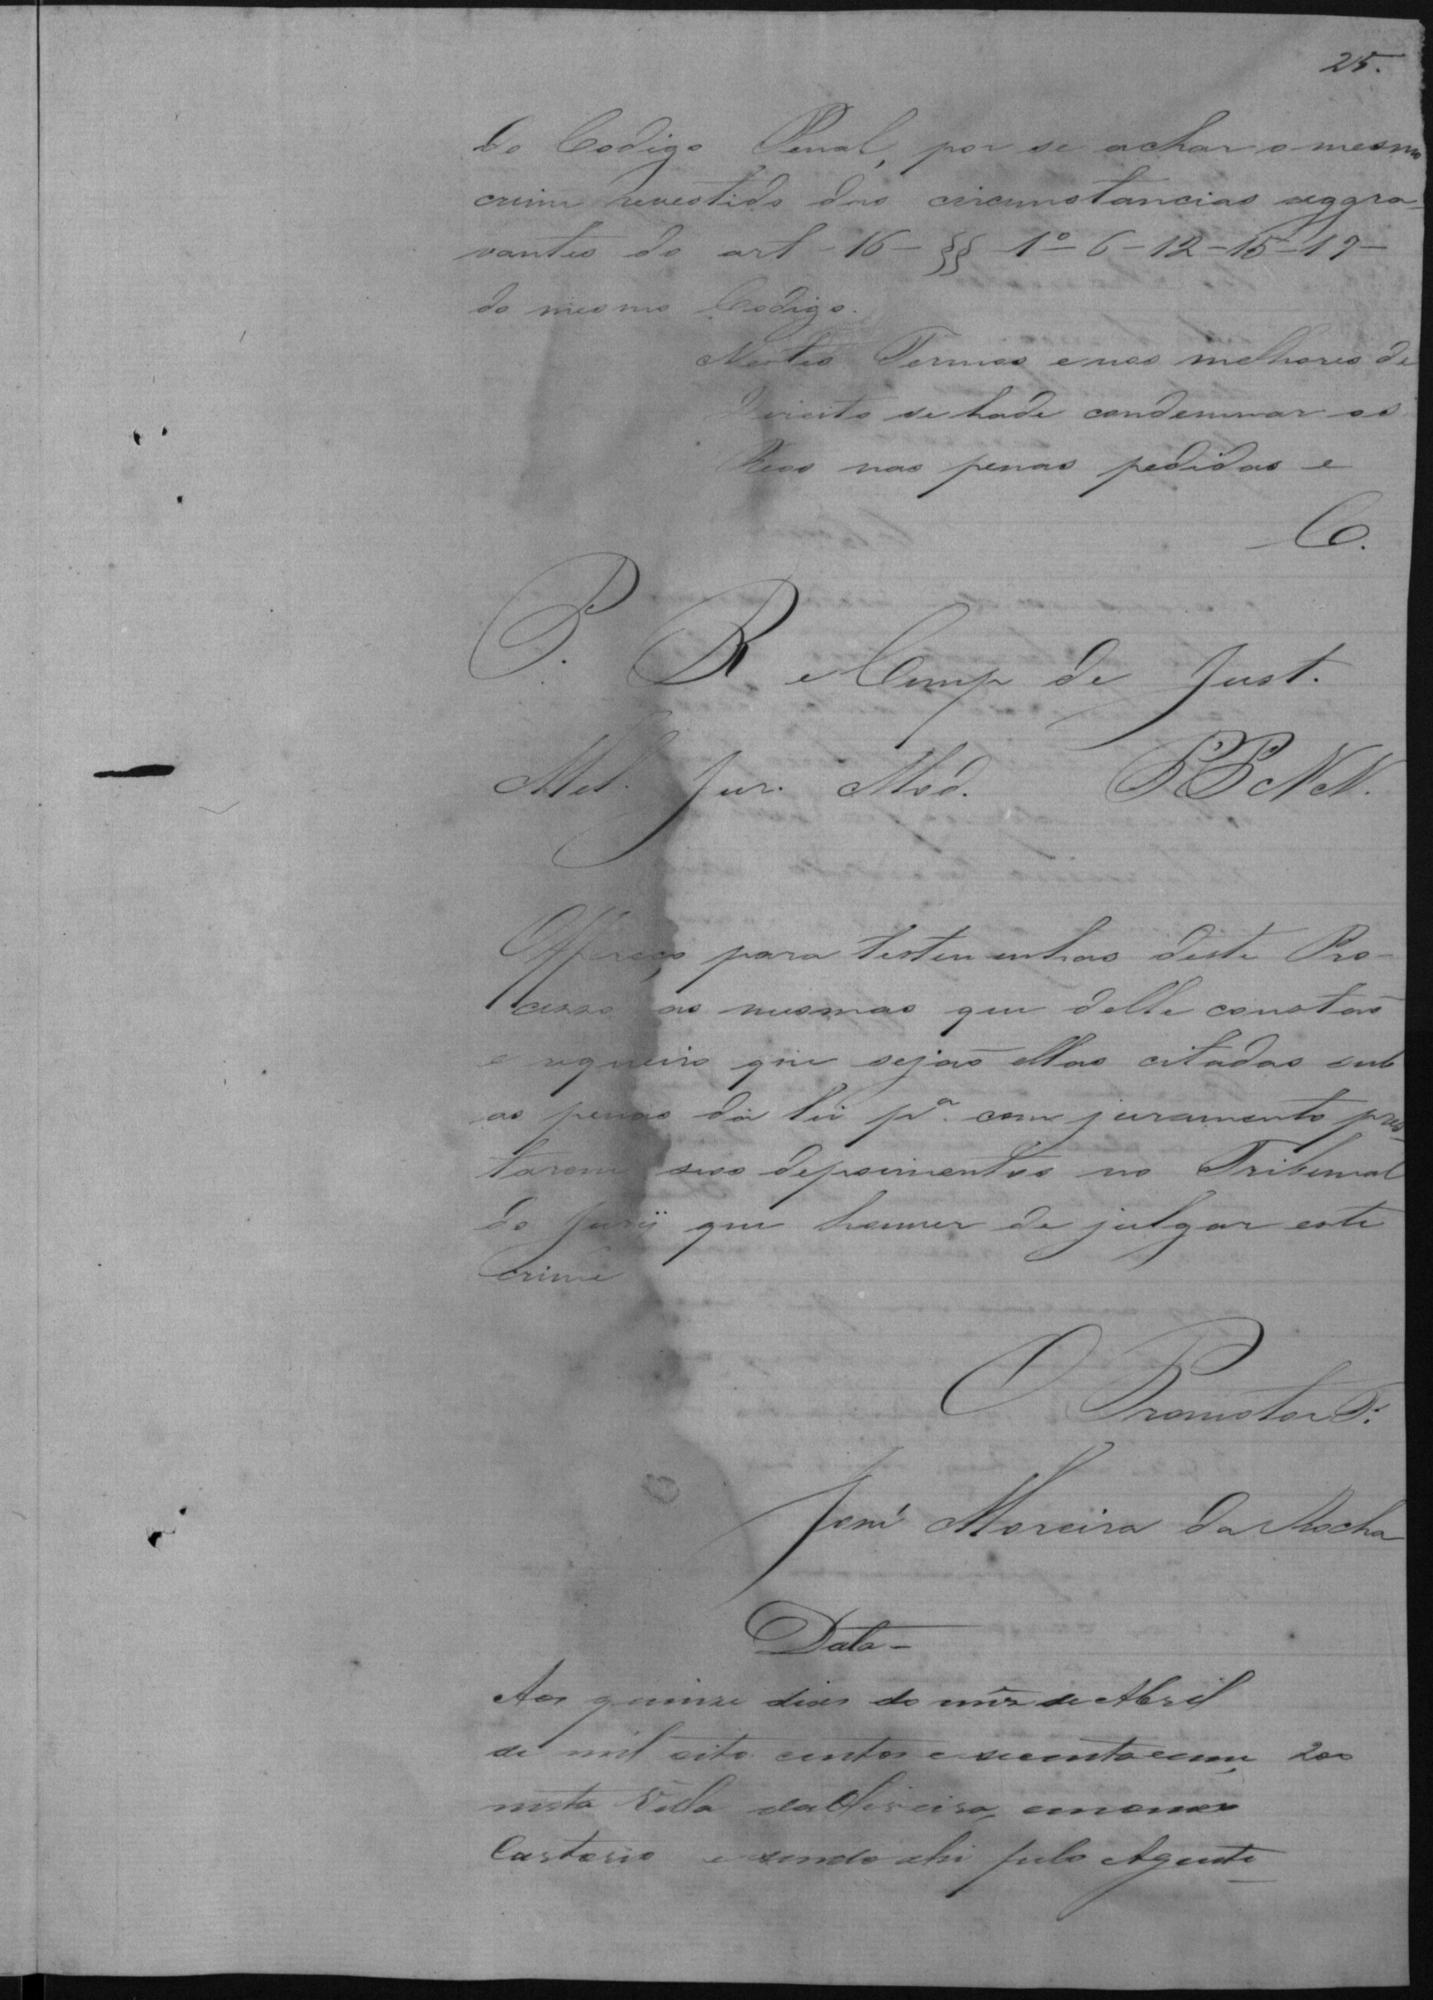 25.
do Codigo Penal, por se achar o mesmo
crime revestido das circumstancias aggra-
vantes do art - 16 - §§ 1º - 6 - 12 - 15 - 17 -
do mesmo Codigo.
Nestes Termos e nos melhores de
Direito se hade condemnar os
Reos nas penas pedidas e
C.
P. R e Comp de Just.
Mel. Jur. Med. PP NN.
Offereço para testemunhas deste Pro-
cesso as mesmas que delle constão
e requeiro que sejão ellas citadas sub
as penas da lei pª. com juramento pres-
tarem seos depoimentos no Tribunal
do Jury que houver de julgar este
Crime
O Promotor P.
José Moreira da Rocha
Data -
Aos quinze dias do mez de Abril
de mil oito centos e secenta e um 200
nesta Villa da em meo
Cartorio e sendo ahi pelo Agente